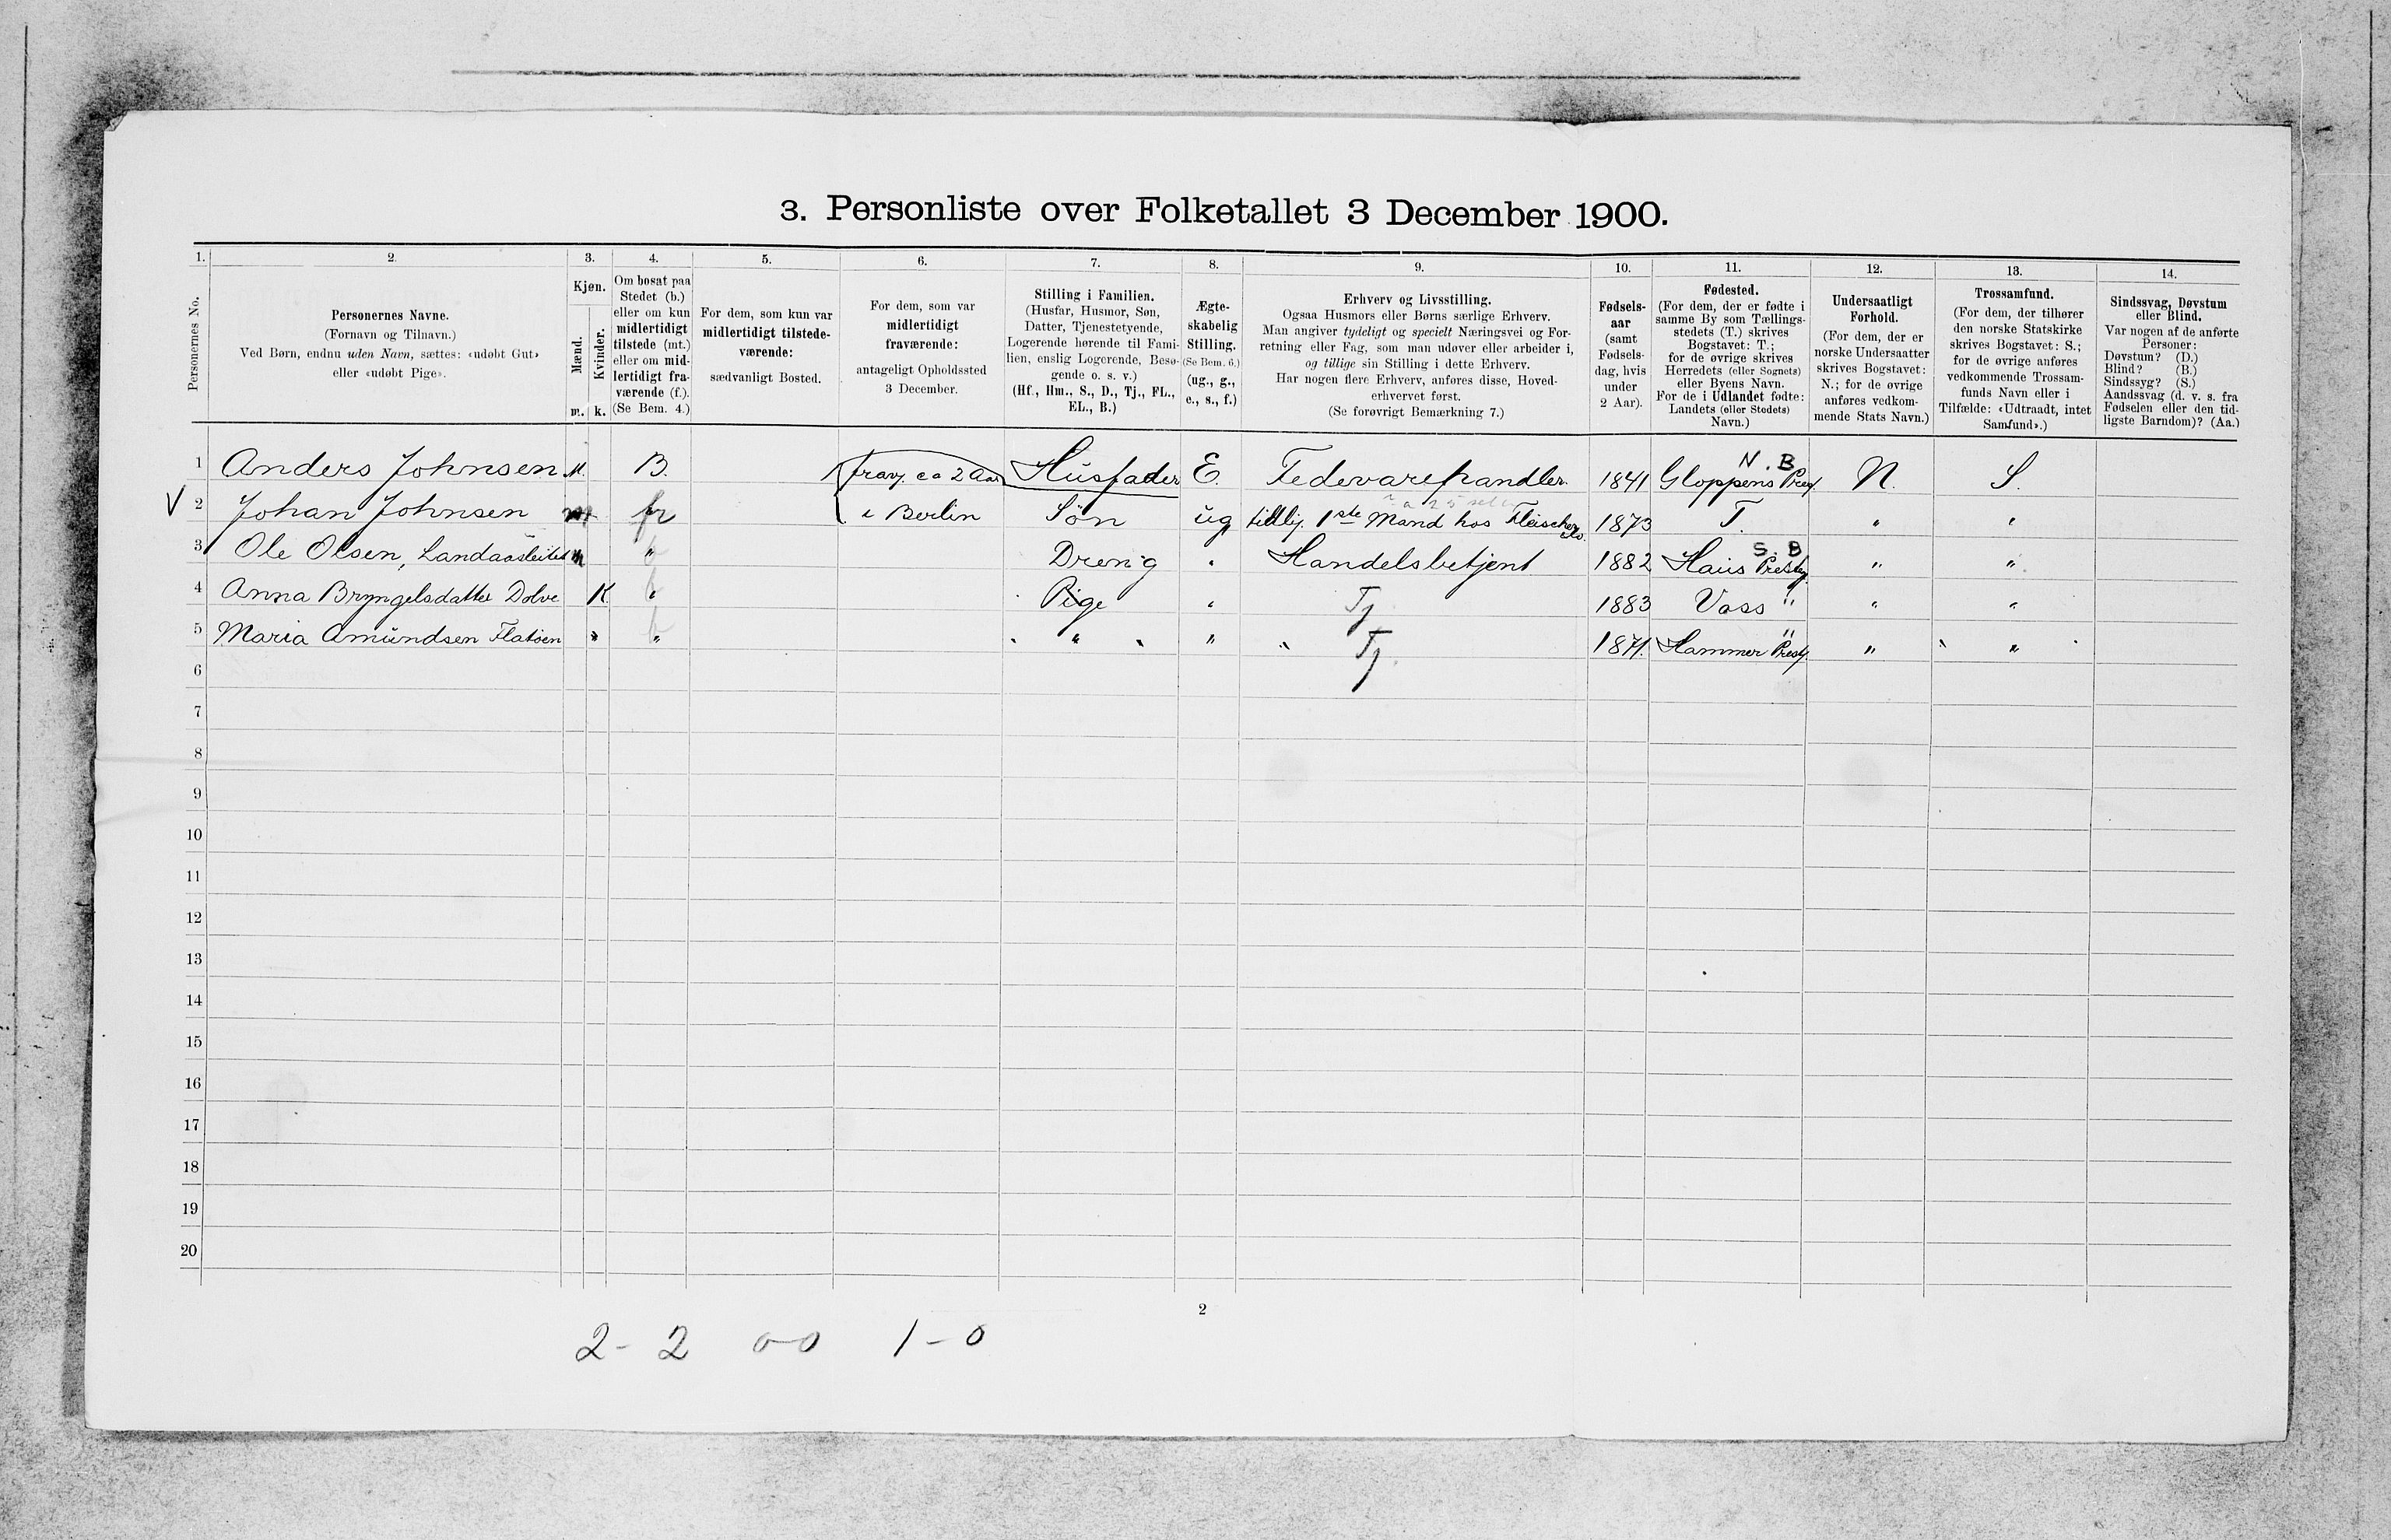 3. Personliste over Folketallet 3 December 1900.
1. 2. 3. 4. 5. 6. 7. 8. 9. 10. 11. 12. 13. 14.
Personernes No.
Personernes Navne.
(Fornavn og Tilnavn.)
Ved Børn, endnu uden Navn, sættes: «udøbt Gut»
eller «udøbt Pige».
Kjøn.
Mænd.
Kvinder.
m. k.
Om bosat paa
Stedet (b.)
eller om kun
midlertidigt
tilstede (mt.)
eller om mid-
lertidigt fra-
værende (f.).
(Se Bem. 4.)
For dem, som kun var
midlertidigt tilstede-
værende:
sædvanligt Bosted.
For dem, som var
midlertidigt
fraværende:
antageligt Opholdssted
3 December.
Stilling i Familien.
(Husfar, Husmor, Søn,
Datter, Tjenestetyende,
Logerende hørende til Fami-
lien, enslig Logerende, Besø-
gende o. s. v.)
(Hf., Hm., S., D., Tj., FL.,
EL., B.)
Ægte-
skabelig
Stilling.
(Se Bem. 6.)
(ug., g.,
e., s., f.)
Erhverv og Livsstilling.
Ogsaa Husmors eller Børns særlige Erhverv.
Man angiver tydeligt og specielt Næringsvei og For-
retning eller Fag, som man udøver eller arbeider i,
og tillige sin Stilling i dette Erhverv.
Har nogen flere Erhverv, anføres disse, Hoved-
erhvervet først.
(Se forøvrigt Bemærkning 7.)
Fødsels-
aar
(samt
Fødsels-
dag, hvis
under
2 Aar).
Fødested.
(For dem, der er fødte i
samme By som Tællings-
stedets (T.) skrives
Bogstavet: T.;
for de øvrige skrives
Herredets (eller Sognets)
eller Byens Navn.
For de i Udlandet fødte:
Landets (eller Stedets)
Navn.)
Undersaatligt
Forhold.
(For dem, der er
norske Undersaatter
skrives Bogstavet:
N.; for de øvrige
anføres vedkom-
mende Stats Navn.)
Trossamfund.
(For dem, der tilhører
den norske Statskirke
skrives Bogstavet: S.;
for de øvrige anføres
vedkommende Trossam-
funds Navn eller i
Tilfælde: «Udtraadt, intet
Samfund».)
Sindssvag, Døvstum
eller Blind.
Var nogen af de anførte
Personer:
Døvstum? (D.)
Blind? (B.)
Sindssyg? (S.)
Aandssvag (d. v. s. fra
Fødselen eller den tid-
ligste Barndom)? (Aa.)
1 Anders Johnsen M. B. frav. ca 2 Aar Husfader E. Fedevarehandler. 1841 Gloppens N. B. N. S.
2 Johan Johnsen m fr i Berlin Søn ug 1ste Mand hos Fleischer 1873 T. " "
3 Ole Olsen, Landaasleitet m " Dreng " Handelsbetjent 1882 Haus S. B " "
4 Anna Bryngelsdatter Dolve K " Pige " Tj 1883 Voss " " "
5 Maria Amundsen Flatøen " " " " " Tj. 1871. Hammer " " "
6
7
8
9
10
11
12
13
14
15
16
17
18
19
20
2
2 - 2 0-0 1 - 0